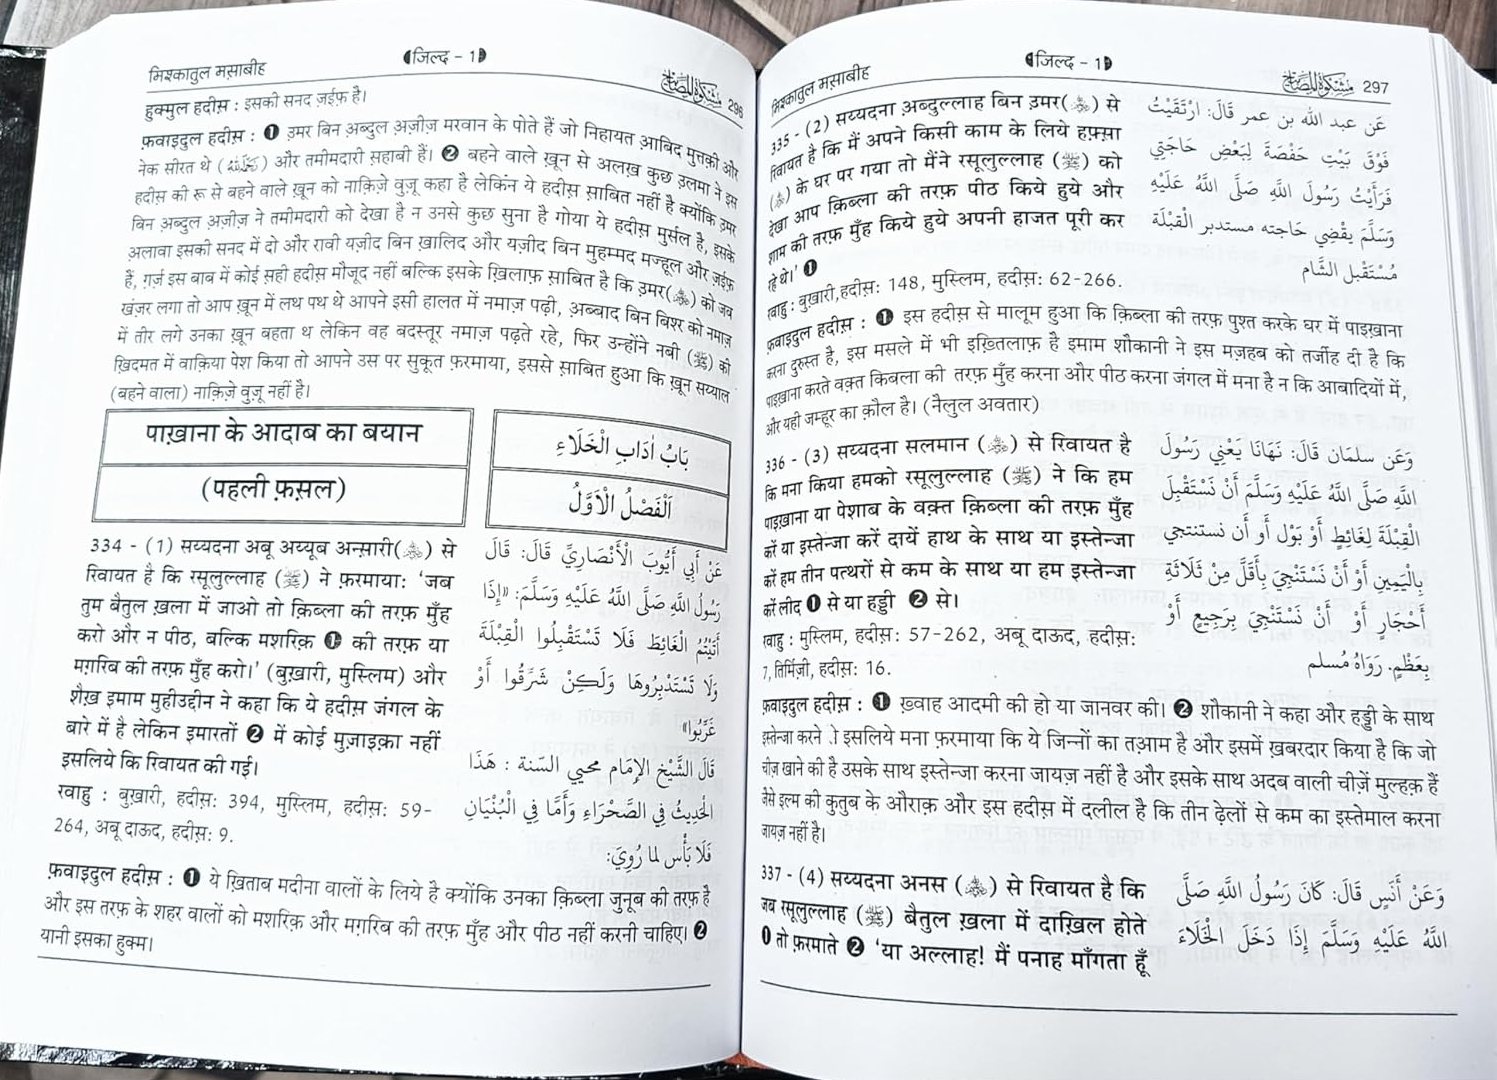 मिश्कातुल मस़ाबीह
जिल्द - 1
مشكوة المصابيح 296
हुक्मुल हदीस़ : इसकी सनद ज़ईफ़ है।
फ़वाइदुल हदीस़ : ❶ उ़मर बिन अ़ब्दुल अ़ज़ीज़ मरवान के पोते हैं जो निहायत आबिद मुत्तक़ी और
नेक सीरत थे (رحمه الله) और तमीमदारी स़हाबी हैं। ❷ बहने वाले ख़ून से अलख़ कुछ उ़लमा ने इस
हदीस़ की रू से बहने वाले ख़ून को नाक़िज़े वुज़ू कहा है लेकिन ये हदीस़ स़ाबित नहीं है क्योंकि उ़मर
बिन अ़ब्दुल अ़ज़ीज़ ने तमीमदारी को देखा है न उनसे कुछ सुना है गोया ये हदीस़ मुर्सल है, इसके
अलावा इसकी सनद में दो और रावी यज़ीद बिन ख़ालिद और यज़ीद बिन मुहम्मद मज्हूल और ज़ईफ़
हैं, ग़र्ज़ इस बाब में कोई स़ही हदीस़ मौजूद नहीं बल्कि इसके ख़िलाफ़ स़ाबित है कि उ़मर(رضي الله عنه) को जब
ख़ंज़र लगा तो आप ख़ून में लथ पथ थे आपने इसी हालत में नमाज़ पढ़ी, अ़ब्बाद बिन बिश्र को नमाज़
में तीर लगे उनका ख़ून बहता थ लेकिन वह बदस्तूर नमाज़ पढ़ते रहे, फिर उन्होंने नबी (ﷺ) की
ख़िदमत में वाक़िया पेश किया तो आपने उस पर सुकूत फ़रमाया, इससे स़ाबित हुआ कि ख़ून सय्याल
(बहने वाला) नाक़िज़े वुज़ू नहीं है।
पाख़ाना के आदाब का बयान
(पहली फ़स़ल)
بَابُ اٰدَابِ الْخَلَاءِ
اَلْفَصْلُ الْاَوَّلُ
334 - (1) सय्यदना अबू अय्यूब अन्स़ारी(رضي الله عنه) से
रिवायत है कि रसूलुल्लाह (ﷺ) ने फ़रमायाः 'जब
तुम बैतुल ख़ला में जाओ तो क़िब्ला की तरफ़ मुँह
करो और न पीठ, बल्कि मशरिक़ ❶ की तरफ़ या
मग़रिब की तरफ़ मुँह करो।' (बुख़ारी, मुस्लिम) और
शैख़ इमाम मुहीउद्दीन ने कहा कि ये हदीस़ जंगल के
बारे में है लेकिन इमारतों ❷ में कोई मुज़ाइक़ा नहीं
इसलिये कि रिवायत की गई।
रवाहु : बुख़ारी, हदीस़: 394, मुस्लिम, हदीस़: 59-
264, अबू दाऊद, हदीस़: 9.
عَنْ أَبِي أَيُّوبَ الْأَنْصَارِيِّ قَالَ: قَالَ
رَسُولُ اللَّهِ صَلَّى اللَّهُ عَلَيْهِ وَسَلَّمَ: «إِذَا
أَتَيْتُمُ الْغَائِطَ فَلَا تَسْتَقْبِلُوا الْقِبْلَةَ
وَلَا تَسْتَدْبِرُوهَا وَلَكِنْ شَرِّقُوا أَوْ
غَرِّبُوا»
قَالَ الشَّيْخ الْإِمَام محيي السّنة : هَذَا
الْحَدِيثُ فِي الصَّحْرَاءِ وَأَمَّا فِي الْبُنْيَانِ
فَلَا بَأْس لما رُوِيَ:
फ़वाइदुल हदीस़ : ❶ ये ख़िताब मदीना वालों के लिये है क्योंकि उनका क़िब्ला जुनूब की तरफ़ है
और इस तरफ़ के शहर वालों को मशरिक़ और मग़रिब की तरफ़ मुँह और पीठ नहीं करनी चाहिए। ❷
यानी इसका हुक्म।
मिश्कातुल मस़ाबीह
जिल्द - 1
مشكوة المصابيح 297
335 - (2) सय्यदना अ़ब्दुल्लाह बिन उ़मर(رضي الله عنه) से
रिवायत है कि मैं अपने किसी काम के लिये हफ़्स़ा
(رضي الله عنها) के घर पर गया तो मैंने रसूलुल्लाह (ﷺ) को
देखा आप क़िब्ला की तरफ़ पीठ किये हुये और
शाम की तरफ़ मुँह किये हुये अपनी हाजत पूरी कर
रहे थे।' ❶
रवाहु : बुख़ारी,हदीस़: 148, मुस्लिम, हदीस़: 62-266.
عَن عبد الله بن عمر قَالَ: ارْتَقَيْتُ
فَوْقَ بَيْتِ حَفْصَةَ لِبَعْضِ حَاجَتِي
فَرَأَيْتُ رَسُولَ اللَّهِ صَلَّى اللَّهُ عَلَيْهِ
وَسَلَّمَ يقْضِي حَاجته مستدبر الْقبْلَة
مُسْتَقْبل الشَّام
फ़वाइदुल हदीस़ : ❶ इस हदीस़ से मालूम हुआ कि क़िब्ला की तरफ़ पुश्त करके घर में पाइख़ाना
करना दुरुस्त है, इस मसले में भी इख़्तिलाफ़ है इमाम शौकानी ने इस मज़हब को तर्जीह दी है कि
पाइख़ाना करते वक़्त किबला की तरफ़ मुँह करना और पीठ करना जंगल में मना है न कि आबादियों में,
और यही जम्हूर का क़ौल है। (नैलुल अवतार)
336 - (3) सय्यदना सलमान (رضي الله عنه) से रिवायत है
कि मना किया हमको रसूलुल्लाह (ﷺ) ने कि हम
पाइख़ाना या पेशाब के वक़्त क़िब्ला की तरफ़ मुँह
करें या इस्तेन्जा करें दायें हाथ के साथ या इस्तेन्जा
करें हम तीन पत्थरों से कम के साथ या हम इस्तेन्जा
करें लीद ❶ से या हड्डी ❷ से।
रवाहु : मुस्लिम, हदीस़: 57-262, अबू दाऊद, हदीस़:
7, तिर्मिज़ी, हदीस़: 16.
وَعَن سلمَان قَالَ: نَهَانَا يَعْنِي رَسُولَ
اللَّهِ صَلَّى اللَّهُ عَلَيْهِ وَسَلَّمَ أَنْ نَسْتَقْبِلَ
الْقِبْلَةَ لِغَائِطٍ أَوْ بَوْل أَو أَن نستنتجي
بِالْيَمِينِ أَوْ أَنْ نَسْتَنْجِيَ بِأَقَلَّ مِنْ ثَلَاثَةِ
أَحْجَارٍ أَوْ أَنْ نَسْتَنْجِيَ بِرَجِيعٍ أَوْ
بِعَظْمٍ. رَوَاهُ مُسلم
फ़वाइदुल हदीस़ : ❶ ख़्वाह आदमी की हो या जानवर की। ❷ शौकानी ने कहा और हड्डी के साथ
इस्तेन्जा करने से इसलिये मना फ़रमाया कि ये जिन्नों का तआ़म है और इसमें ख़बरदार किया है कि जो
चीज़ खाने की है उसके साथ इस्तेन्जा करना जायज़ नहीं है और इसके साथ अदब वाली चीज़ें मुल्हक़ हैं
जैसे इल्म की कुतुब के औराक़ और इस हदीस़ में दलील है कि तीन ढ़ेलों से कम का इस्तेमाल करना
जायज़ नहीं है।
337 - (4) सय्यदना अनस (رضي الله عنه) से रिवायत है कि
जब रसूलुल्लाह (ﷺ) बैतुल ख़ला में दाख़िल होते
❶ तो फ़रमाते ❷ 'या अल्लाह! मैं पनाह माँगता हूँ
وَعَنْ أَنَسٍ قَالَ: كَانَ رَسُولُ اللَّهِ صَلَّى
اللَّهُ عَلَيْهِ وَسَلَّمَ إِذَا دَخَلَ الْخَلَاءَ